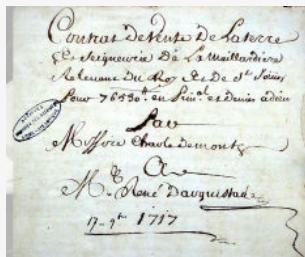 Contrat de Vente de La terre
Et Seigneurie De La Maillardiere
Relevant Du Roy Et De St Louis
Pour 76550# en Prinal et denier adieu
Par
Messire Charle demonty
A
Mr René Darquistade
17 9bre 1717